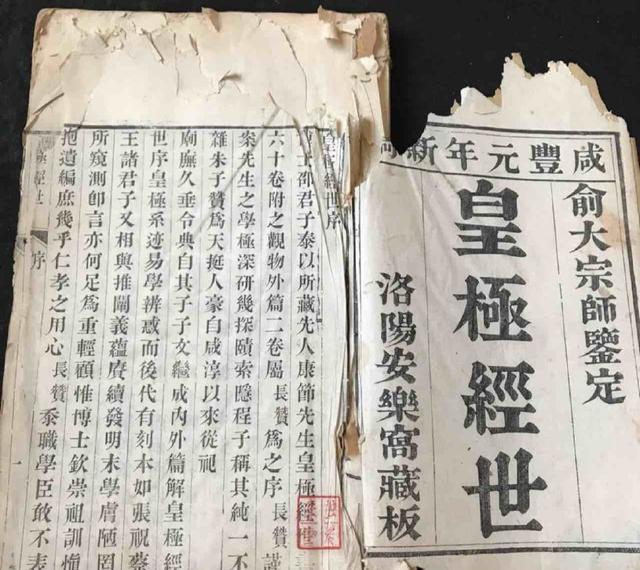 咸豐元年新
俞大宗師鑒定
皇極經世
洛陽安樂窩藏板
經世序
士邵君子泰以所藏先人康節先生皇極經世
六十卷附之觀物外篇二卷屬長贊爲之序長贊謹
案先生之學極深研幾探賾索隱程子稱其純一不
雜朱子贊爲天挺人豪自咸淳以來從祀
廟廡久垂令典自其子子文繼成內外篇解皇極經
世序皇極系述易學辨惑而後代有刻本如張祝蔡
王諸君子又相與推闡義蘊賡續發明末學膚陋罔
所窺測卽言亦何足爲重輕顧惟博士欽崇祖訓
抱遺編庶幾乎仁孝之用心長贊忝職學臣敢不表
極經世
序
一